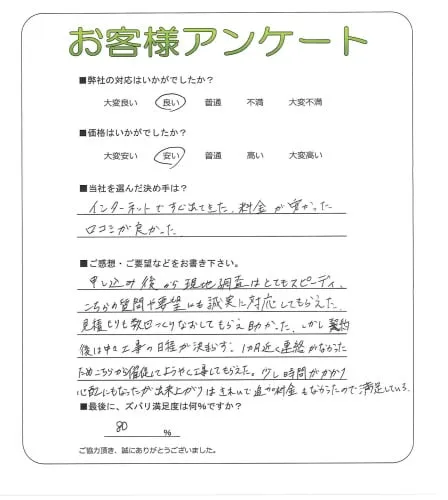 お客様アンケート
■弊社の対応はいかがでしたか?
大変良い 良い 普通 不満 大変不満
■価格はいかがでしたか?
大変安い 安い 普通 高い 大変高い
■当社を選んだ決め手は?
インターネットですぐ出てきた、料金が安かった
口コミが良かった
■ご感想・ご要望などをお書き下さい。
申し込み後から現地調査はとてもスピーディ、
こちらの質問や要望にも誠実に対応してもらえた。
見積もりも数回つくりなおしてもらえ助かった。しかし契約
後は中々工事の日程が決まらず、1カ月近く連絡がなかった
ためこちらから催促してようやく工事してもらえた。少し時間がかかり
心配にもなったが出来上がりはきれいで追加料金もなかったので満足している。
■最後に、ズバリ満足度は何%ですか?
80 %
ご協力頂き、誠にありがとうございました。